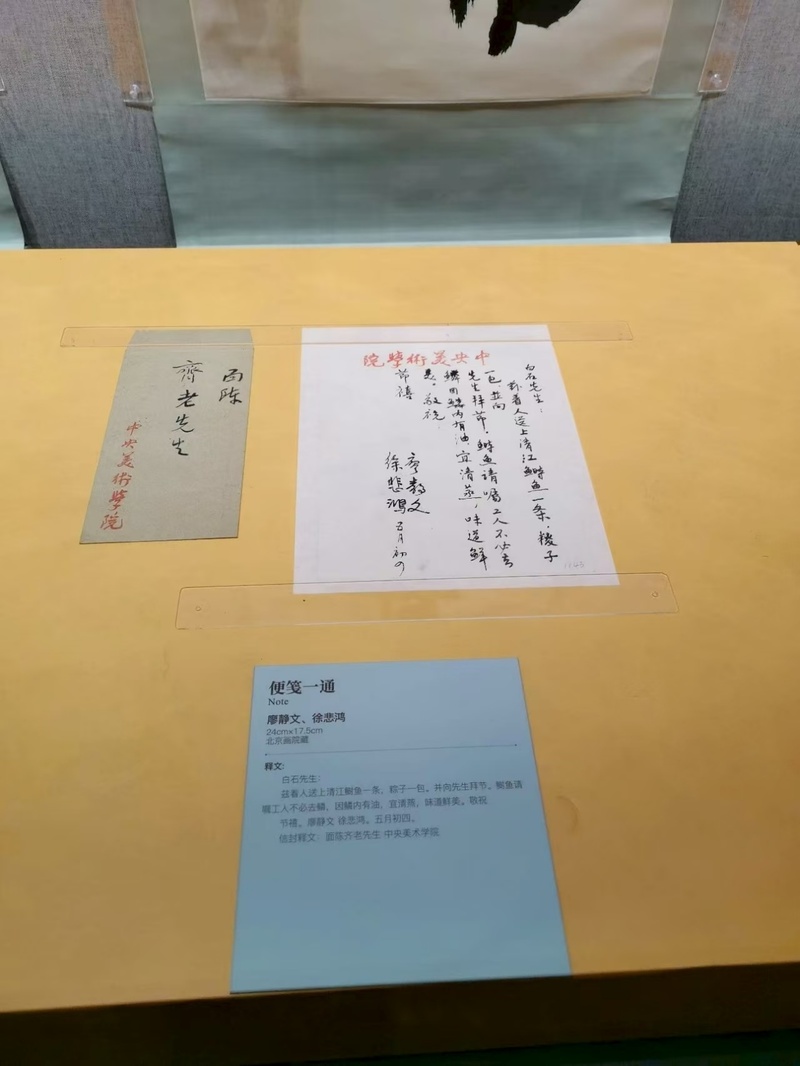 面陈
齊老先生
中央美術學院
中央美術學院
白石先生：
茲着人送上清江鰣魚一条，糭子
一包，並向
先生拜节。鰣魚請囑工人不必去
鱗因鱗内有油，宜清蒸，味道鮮
美。敬祝
节禧
廖静文
徐悲鴻 五月初四
便笺一通
Note
廖静文、徐悲鸿
24cm×17.5cm
北京画院藏
释文：
白石先生：
兹着人送上清江鲥鱼一条，粽子一包。并向先生拜节。鲥鱼请
嘱工人不必去鳞，因鳞内有油，宜清蒸，味道鲜美。敬祝
节禧。廖静文 徐悲鸿。五月初四。
信封释文：面陈齐老先生 中央美术学院